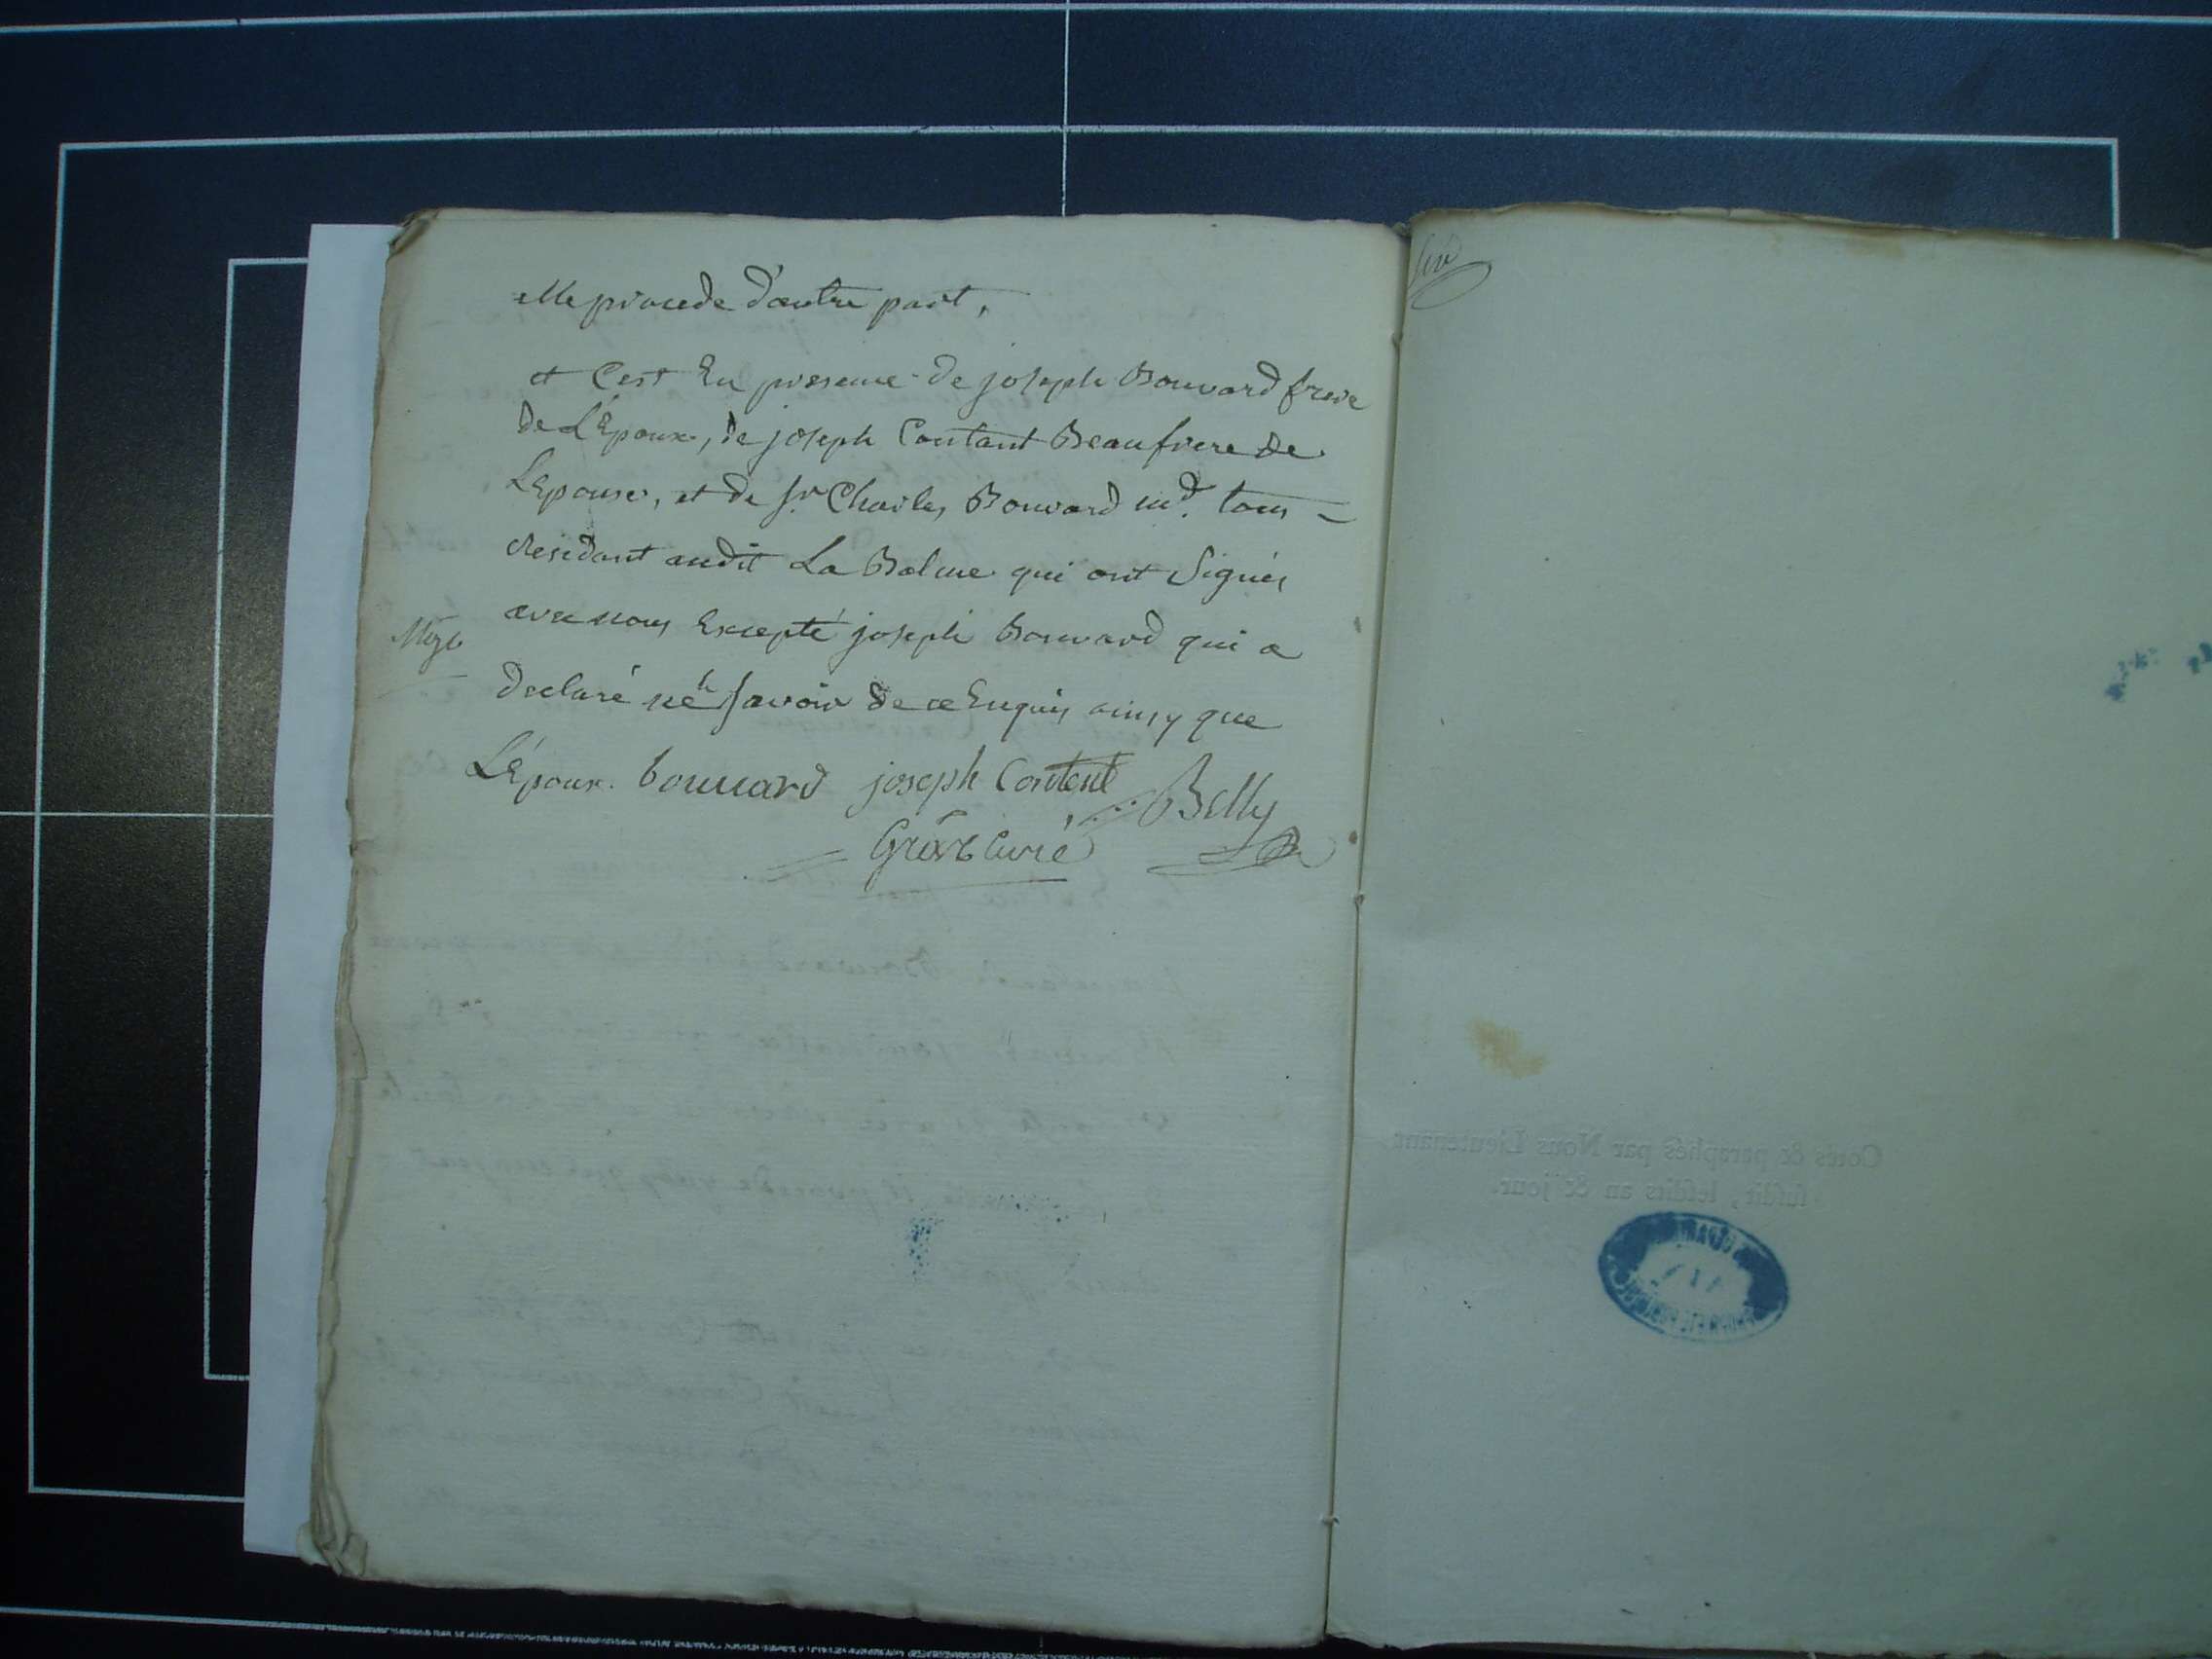 elle procede d'autre part,
et c'est En presence de joseph Bouvard frere
de L'Epoux, de joseph Contant Beaufrere de
L'Epouse, et de Sr. Charles Bouvard md. tous
residant audit La Balme qui ont Signés
avec nous Excepté joseph Bouvard qui a
declaré ne le Savoir de ce Enquis ainsy que
L'Époux. bouuard joseph Content Belly
curé
Cotés & paraphés par Nous Lieutenant
susdit, lesdits an & jour.